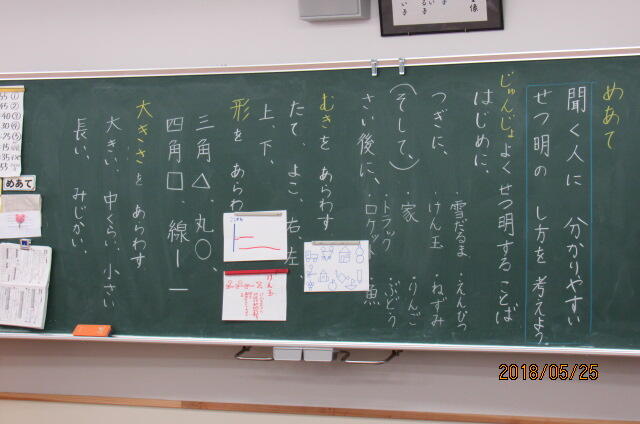 めあて
聞く人に 分かりやすい
せつ明の し方を 考えよう。
じゅんじょよくせつ明することば
はじめに、
つぎに、
(そして、)
さい後に、
・雪だるま ・えんぴつ
・けん玉 ・ねずみ
・家 ・りんご
・トラック ・ぶどう
・ロケット ・魚
むきを あらわす
たて、よこ、右、左、
上、下、
形を あらわ
三角△、丸○、
四角□、線ー|
大きさを あらわす
大きい、中くらい、小さい
長い、みじかい、
めあて
けん玉
2018/05/25